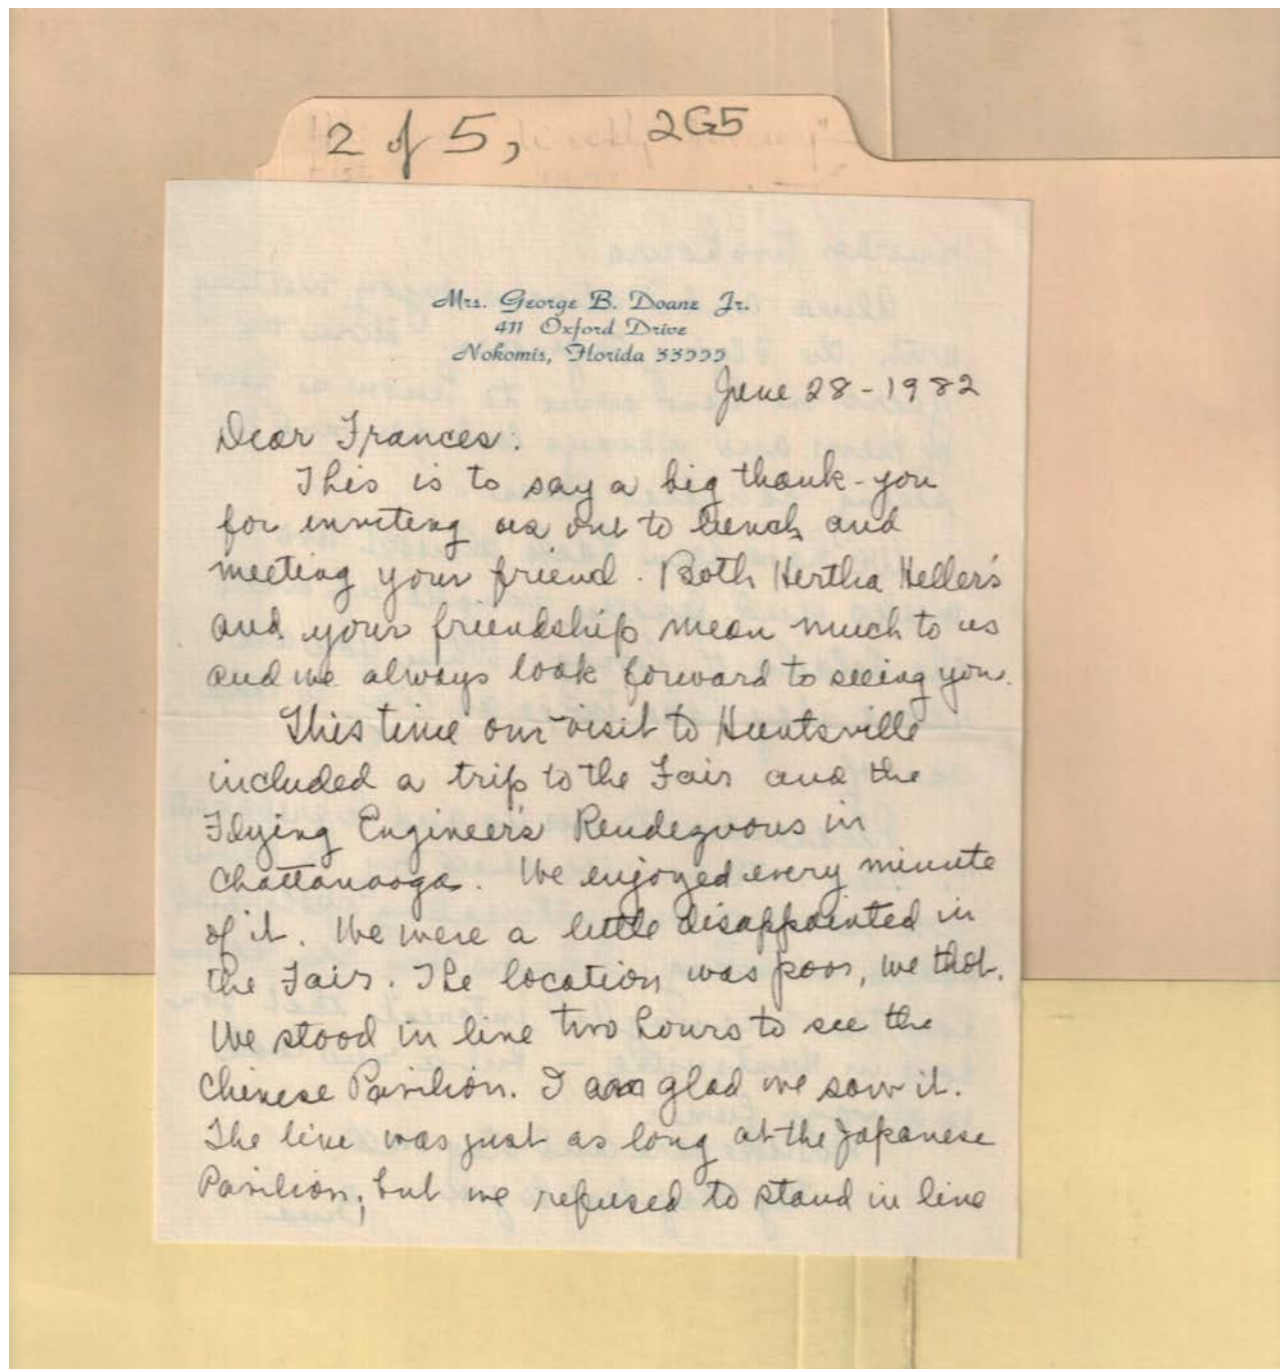 2 of 5, 2G5
Mrs. George B. Doane Jr.
411 Oxford Drive
Nokomis, Florida 33555
June 28-1982
Dear Frances:
This is to say a big thank-you
for inviting us out to lunch and
meeting your friend. Both Hertha Heller's
and your friendship mean much to us
and we always look forward to seeing you.
This time our visit to Huntsville
included a trip to the Fair and the
Flying Engineer's Rendezvous in
Chattanooga. We enjoyed every minute
of it. We were a little disappointed in
the Fair. The location was poor, we thot.
We stood in line two hours to see the
Chinese Pavilion. I am glad we saw it.
The line was just as long at the Japanese
Pavilion, but we refused to stand in line